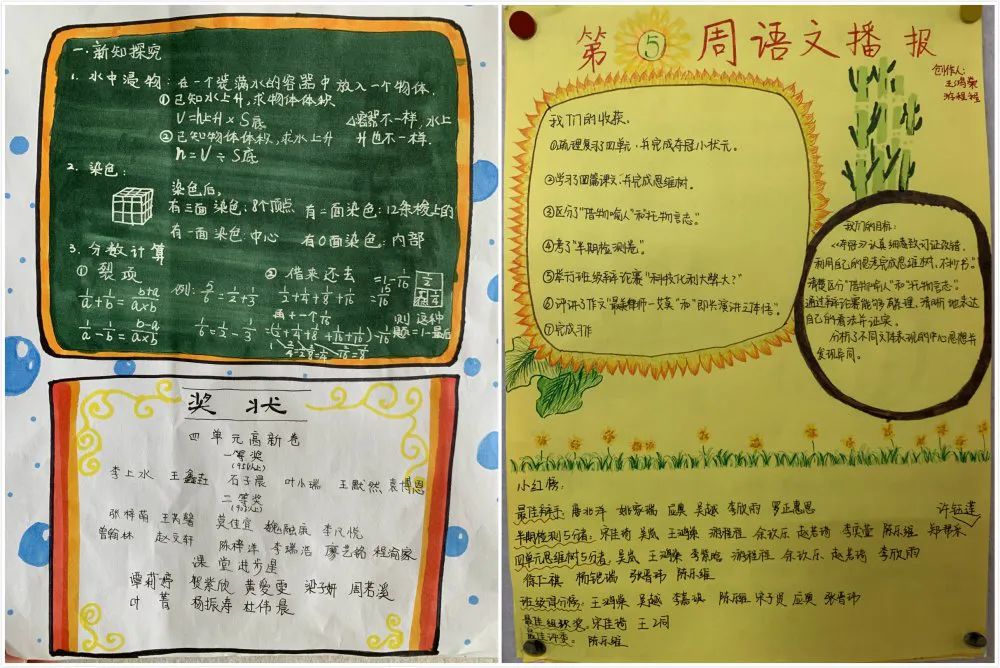 一.新知探究
1. 水中浸物：在一个装满水的容器中放入一个物体.
①已知水上升，求物体体积
V=h上升×S底
△容器不一样，水上升也不一样.
②已知物体体积，求水上升
h=V÷S底
2. 染色：
染色后，
有三面染色：8个顶点 有二面染色：12条棱上的
有一面染色：中心 有0面染色：内部
3. 分数计算
① 裂项
1/a+1/b=b+a/a×b 例：5/6=1/2+1/3
1/a-1/b=b-a/a×b 1/6=1/2-1/3
② 借来还去
1/2+1/4+1/8+1/16
=1-1/16
=15/16
再+一个1/16
=(1/2+1/4+1/8+1/16+1/16)-1/16
则这种题=1-最后
奖状
四单元高新卷
一等奖
(95以上)
李上水 王鑫垚 石子晨 叶小瑞 王默然 袁博恩
二等奖
(90以上)
张梓萌 王芮馨 莫佳宜 魏融辰 李凡悦
曾翰林 赵文轩 陈梓洋 李瑞浩 廖艺铭 程俞家
课堂进步星
谭莉婷 贺紫欣 黄爱雯 梁子妍 周若溪
叶菁 杨振寿 杜伟晨
第5周语文播报
创作人：
王鸿燊
游程程
我们的收获.
①梳理复习了四单元，并完成夺冠小状元。
②学习了四篇课文，并完成思维树。
③区分了“借物喻人”和“托物言志”。
④考了“半期检测卷”。
⑤举行班级辩论赛“科技化利大弊大？”
⑥评讲习作文“最美样师一文美”和“即兴演讲立体活”。
⑦完成习作
我们的目标：
《夺冠》认真细看致订证改错.
利用自己的思考完成思维树，不抄书。”
清楚区分“借物喻人”和“托物言志”。
通过辩论赛能够有条理，清晰地表达
自己的看法并证实。
分析了不同文体表现的中心思想并
发现异同。
小红榜：
最佳辩手：唐北洋 姚睿瑞 应奥 吴越 李欣雨 罗正惠思 许钰莲
半期检测5分者：宋佳荷 吴岚 王鸿燊 游程程 余欢乐 赵若诗 李奕萱 陈乐维 郑帮禾
四单元思维树5分者：吴岚 王鸿燊 李紫晗 游程程 余欢乐 赵若诗 李欣雨
徐仁祺 杨铠瑞 张睿祎 陈乐维
班级得分榜：王鸿燊 吴越 李嘉祺 陈乐维 宋子昊 应奥 张睿祎
最佳组织奖：宋佳荷 王之同
最佳评委：陈乐维